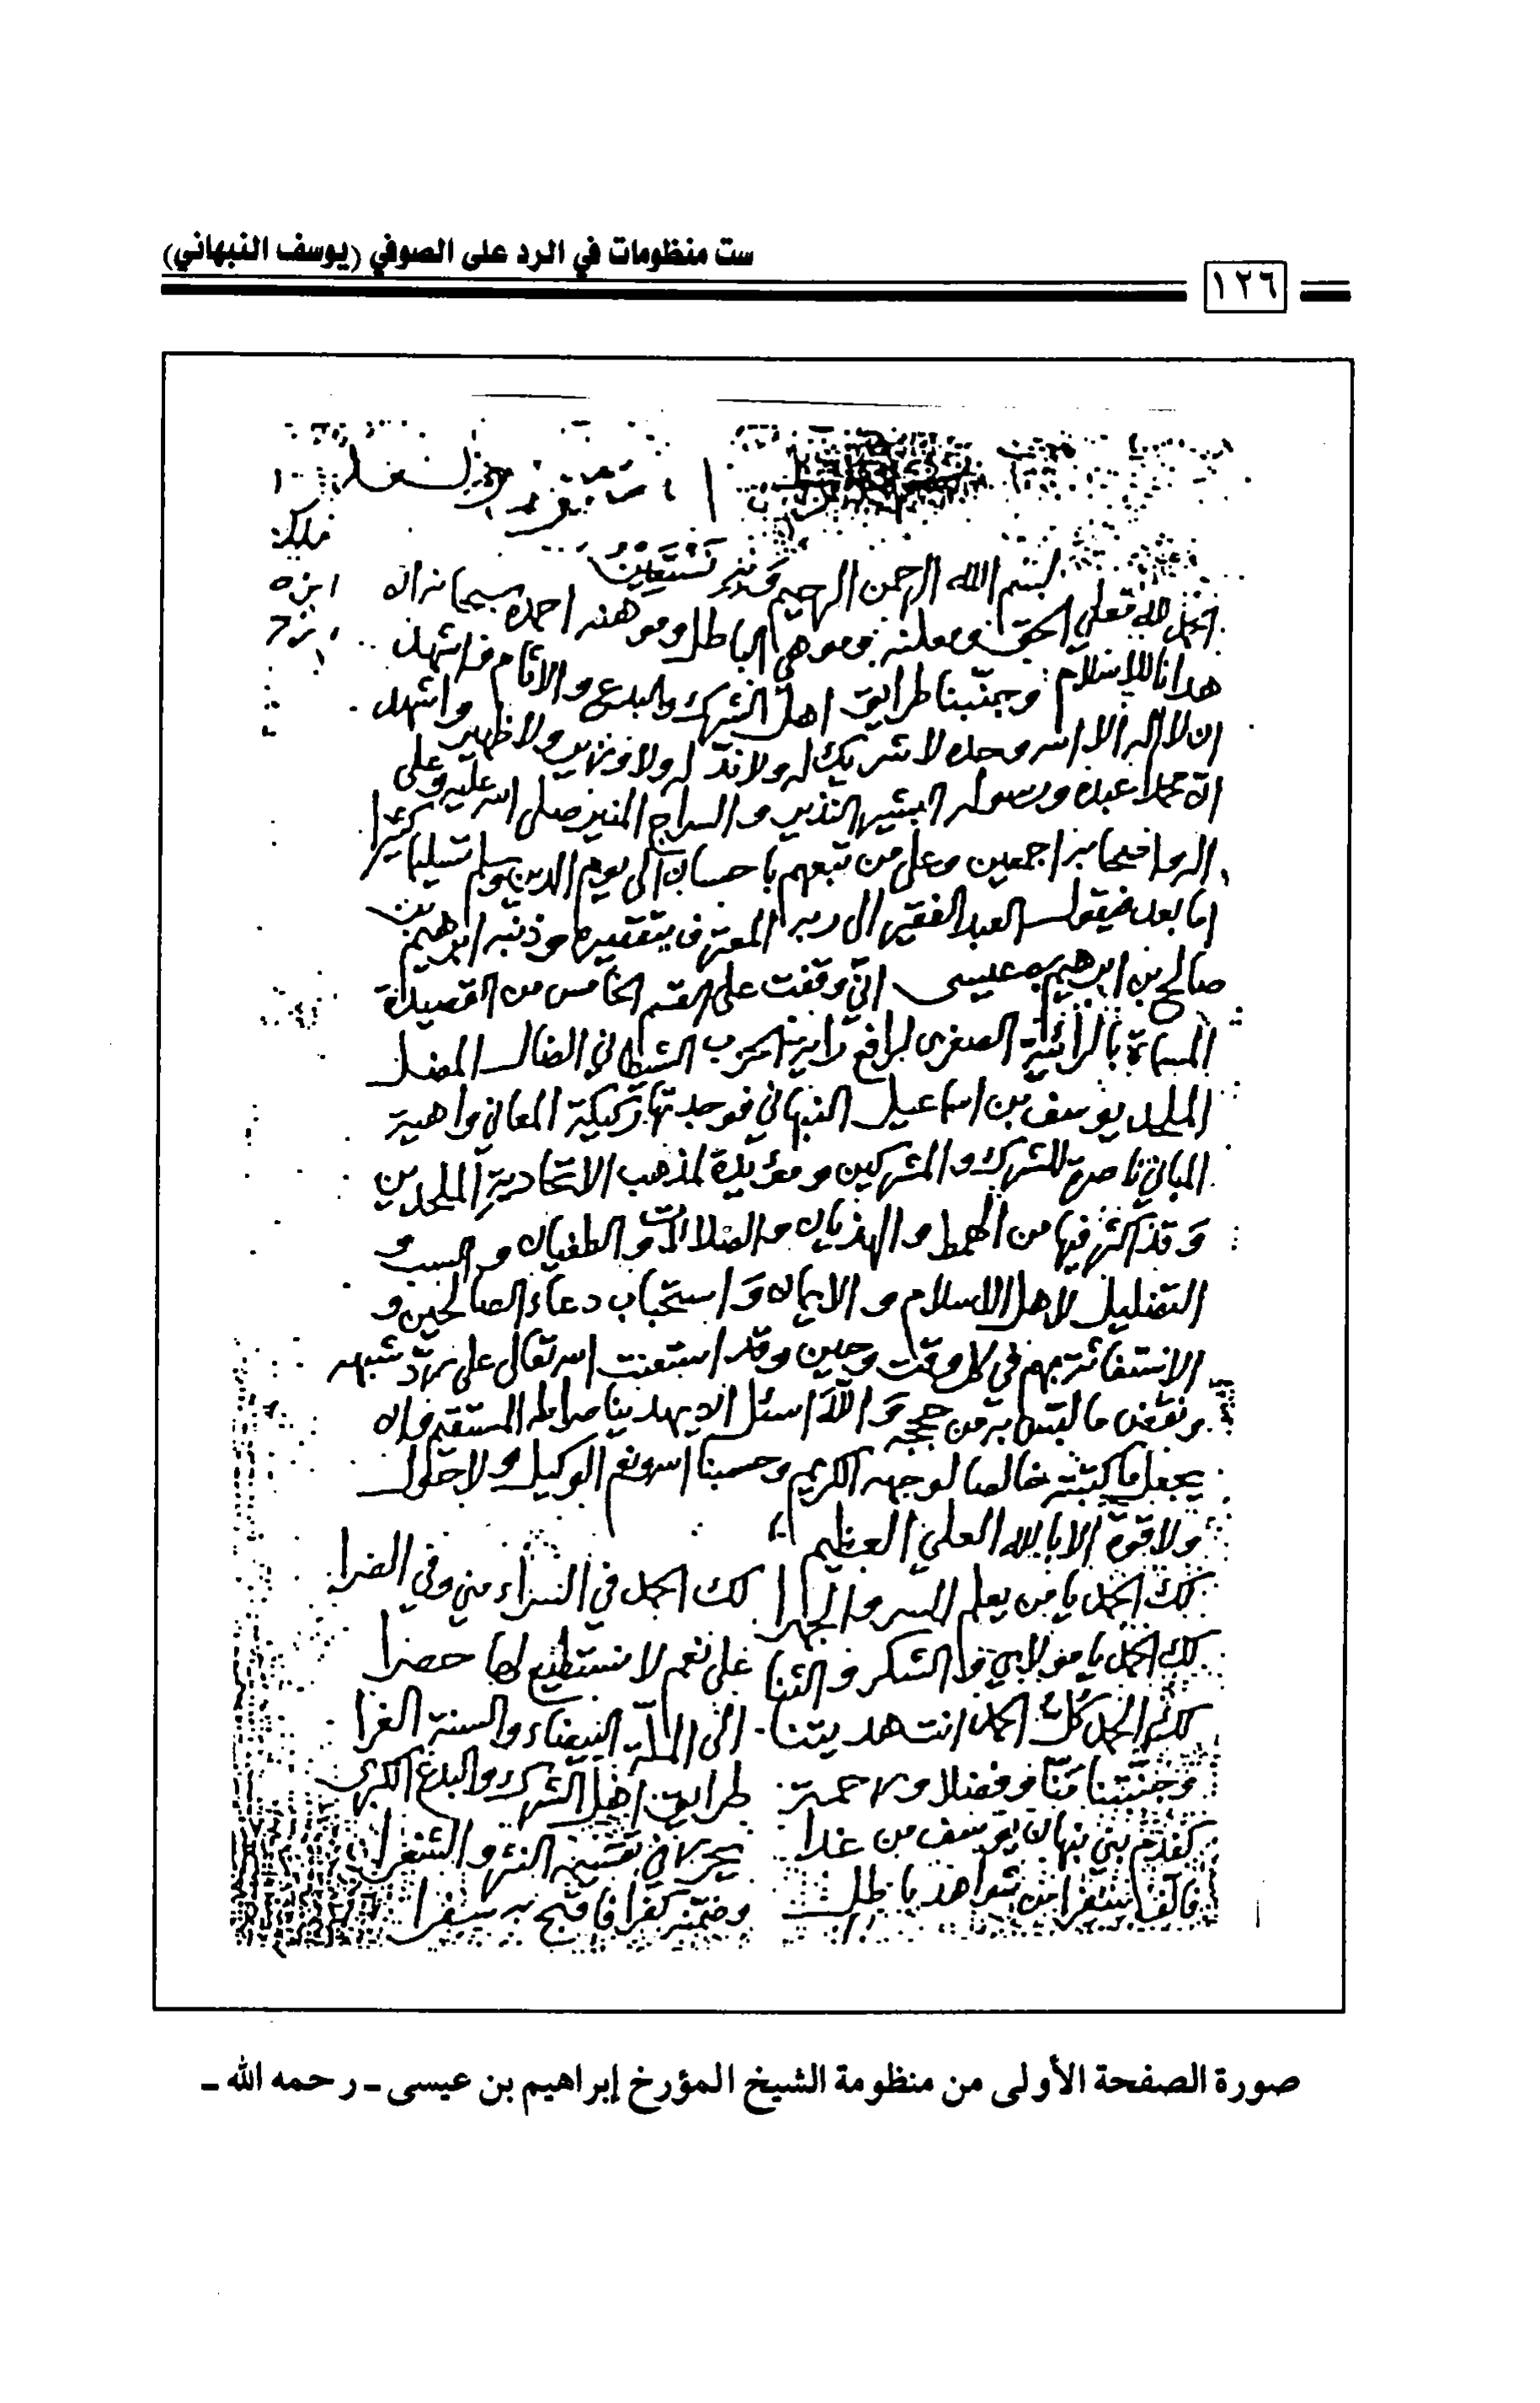 ست منظومات في الرد على الصوفي (يوسف النبهاني)
١٢٦
بسم الله الرحمن الرحيم وبه نستعين
الحمد لله معلي الحق ومعلنه وموهي الباطل وموهنه احمده سبحانه ان
هدانا للاسلام وجنبنا طرايق اهل الشرك والبدع والاثام واشهد
ان لا اله الا الله وحده لا شريك له ولا ند له ولا ظهير واشهد
ان محمدا عبده ورسوله البشير النذير والسراج المنير صلى الله عليه وعلى
اله واصحابه اجمعين وعلى من تبعهم باحسان الى يوم الدين وسلم تسليما كثيرا
اما بعد فيقول العبد الفقير الى ربه المعترف بتقصيره وذنبه ابرهيم بن
صالح بن ابرهيم بن عيسى اني وقفت على القسم الخامس من القصيدة
المسماة بالرائية الصغرى لرافع راية الحزب الشيطاني الضال المضل
الملحد يوسف بن اسماعيل النبهاني فوجدتها ركيكة المعاني واهية
المباني ناصرة للشرك والمشركين ومؤيدة لمذهب الاتحادية الملحدين
وقد اكثر فيها من الهمط والهذيان والضلالات والطغيان والسب و
التضليل لاهل الاسلام والايمان واستحباب دعاء الصالحين و
الاستغاثة بهم في كل وقت وحين وقد استعنت الله تعالى على رد شبهه
ونقض ما لبس به من حججه والله اسئل ان يهدينا صراطه المستقيم وان
يجعل ما كتبته خالصا لوجهه الكريم وحسبنا الله ونعم الوكيل ولا حول
ولا قوة الا بالله العلي العظيم
لك الحمد يا من يعلم السر والجهرا لك الحمد في السراء مني وفي الضرا
لك الحمد يا مولاي والشكر والثنا على نعم لا نستطيع لها حصرا
لك الحمد كل الحمد انت هديتنا الى الملة البيضاء والسنة الغرا
وجنبتنا منا وفضلا ورحمة طرايق اهل الشرك والبدع الكبرى
كفدم بني نبهان يوسف من غدا يحرر في تحسينه النثر والشعرا
فالف سفرا من شواهد باطل وضمنه كفرا فاقبح به سفرا
صورة الصفحة الأولى من منظومة الشيخ المؤرخ إبراهيم بن عيسى ـ رحمه الله ـ